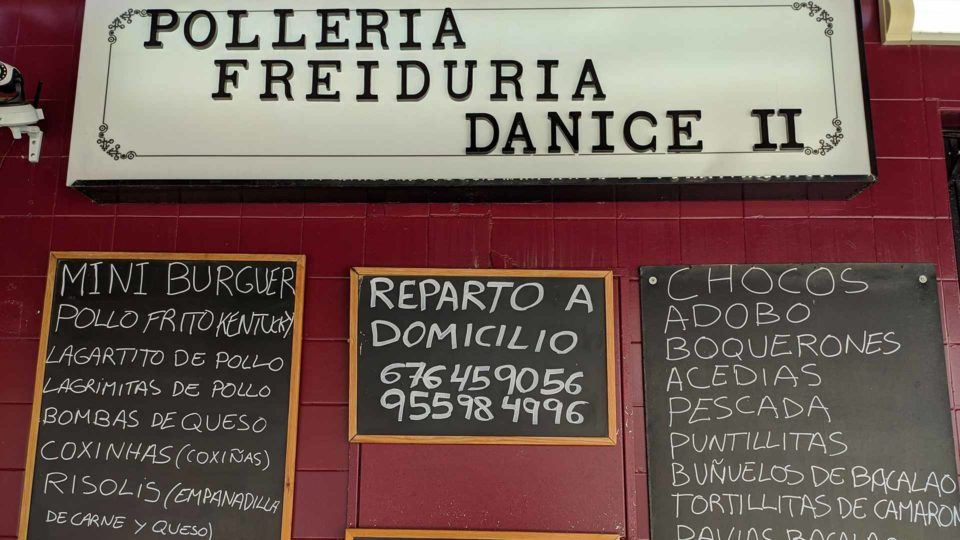 POLLERIA
FREIDURIA
DANICE II
MINI BURGUER
POLLO FRITO KENTUCKY
LAGARTITO DE POLLO
LAGRIMITAS DE POLLO
BOMBAS DE QUESO
COXINHAS (COXIÑAS)
RISOLIS (EMPANADILLA
DE CARNE Y QUESO)
REPARTO A
DOMICILIO
676459056
955984996
CHOCOS
ADOBO
BOQUERONES
ACEDIAS
PESCADA
PUNTILLITAS
BUÑUELOS DE BACALAO
TORTILLITAS DE CAMARON
PAVIAS BACALAO